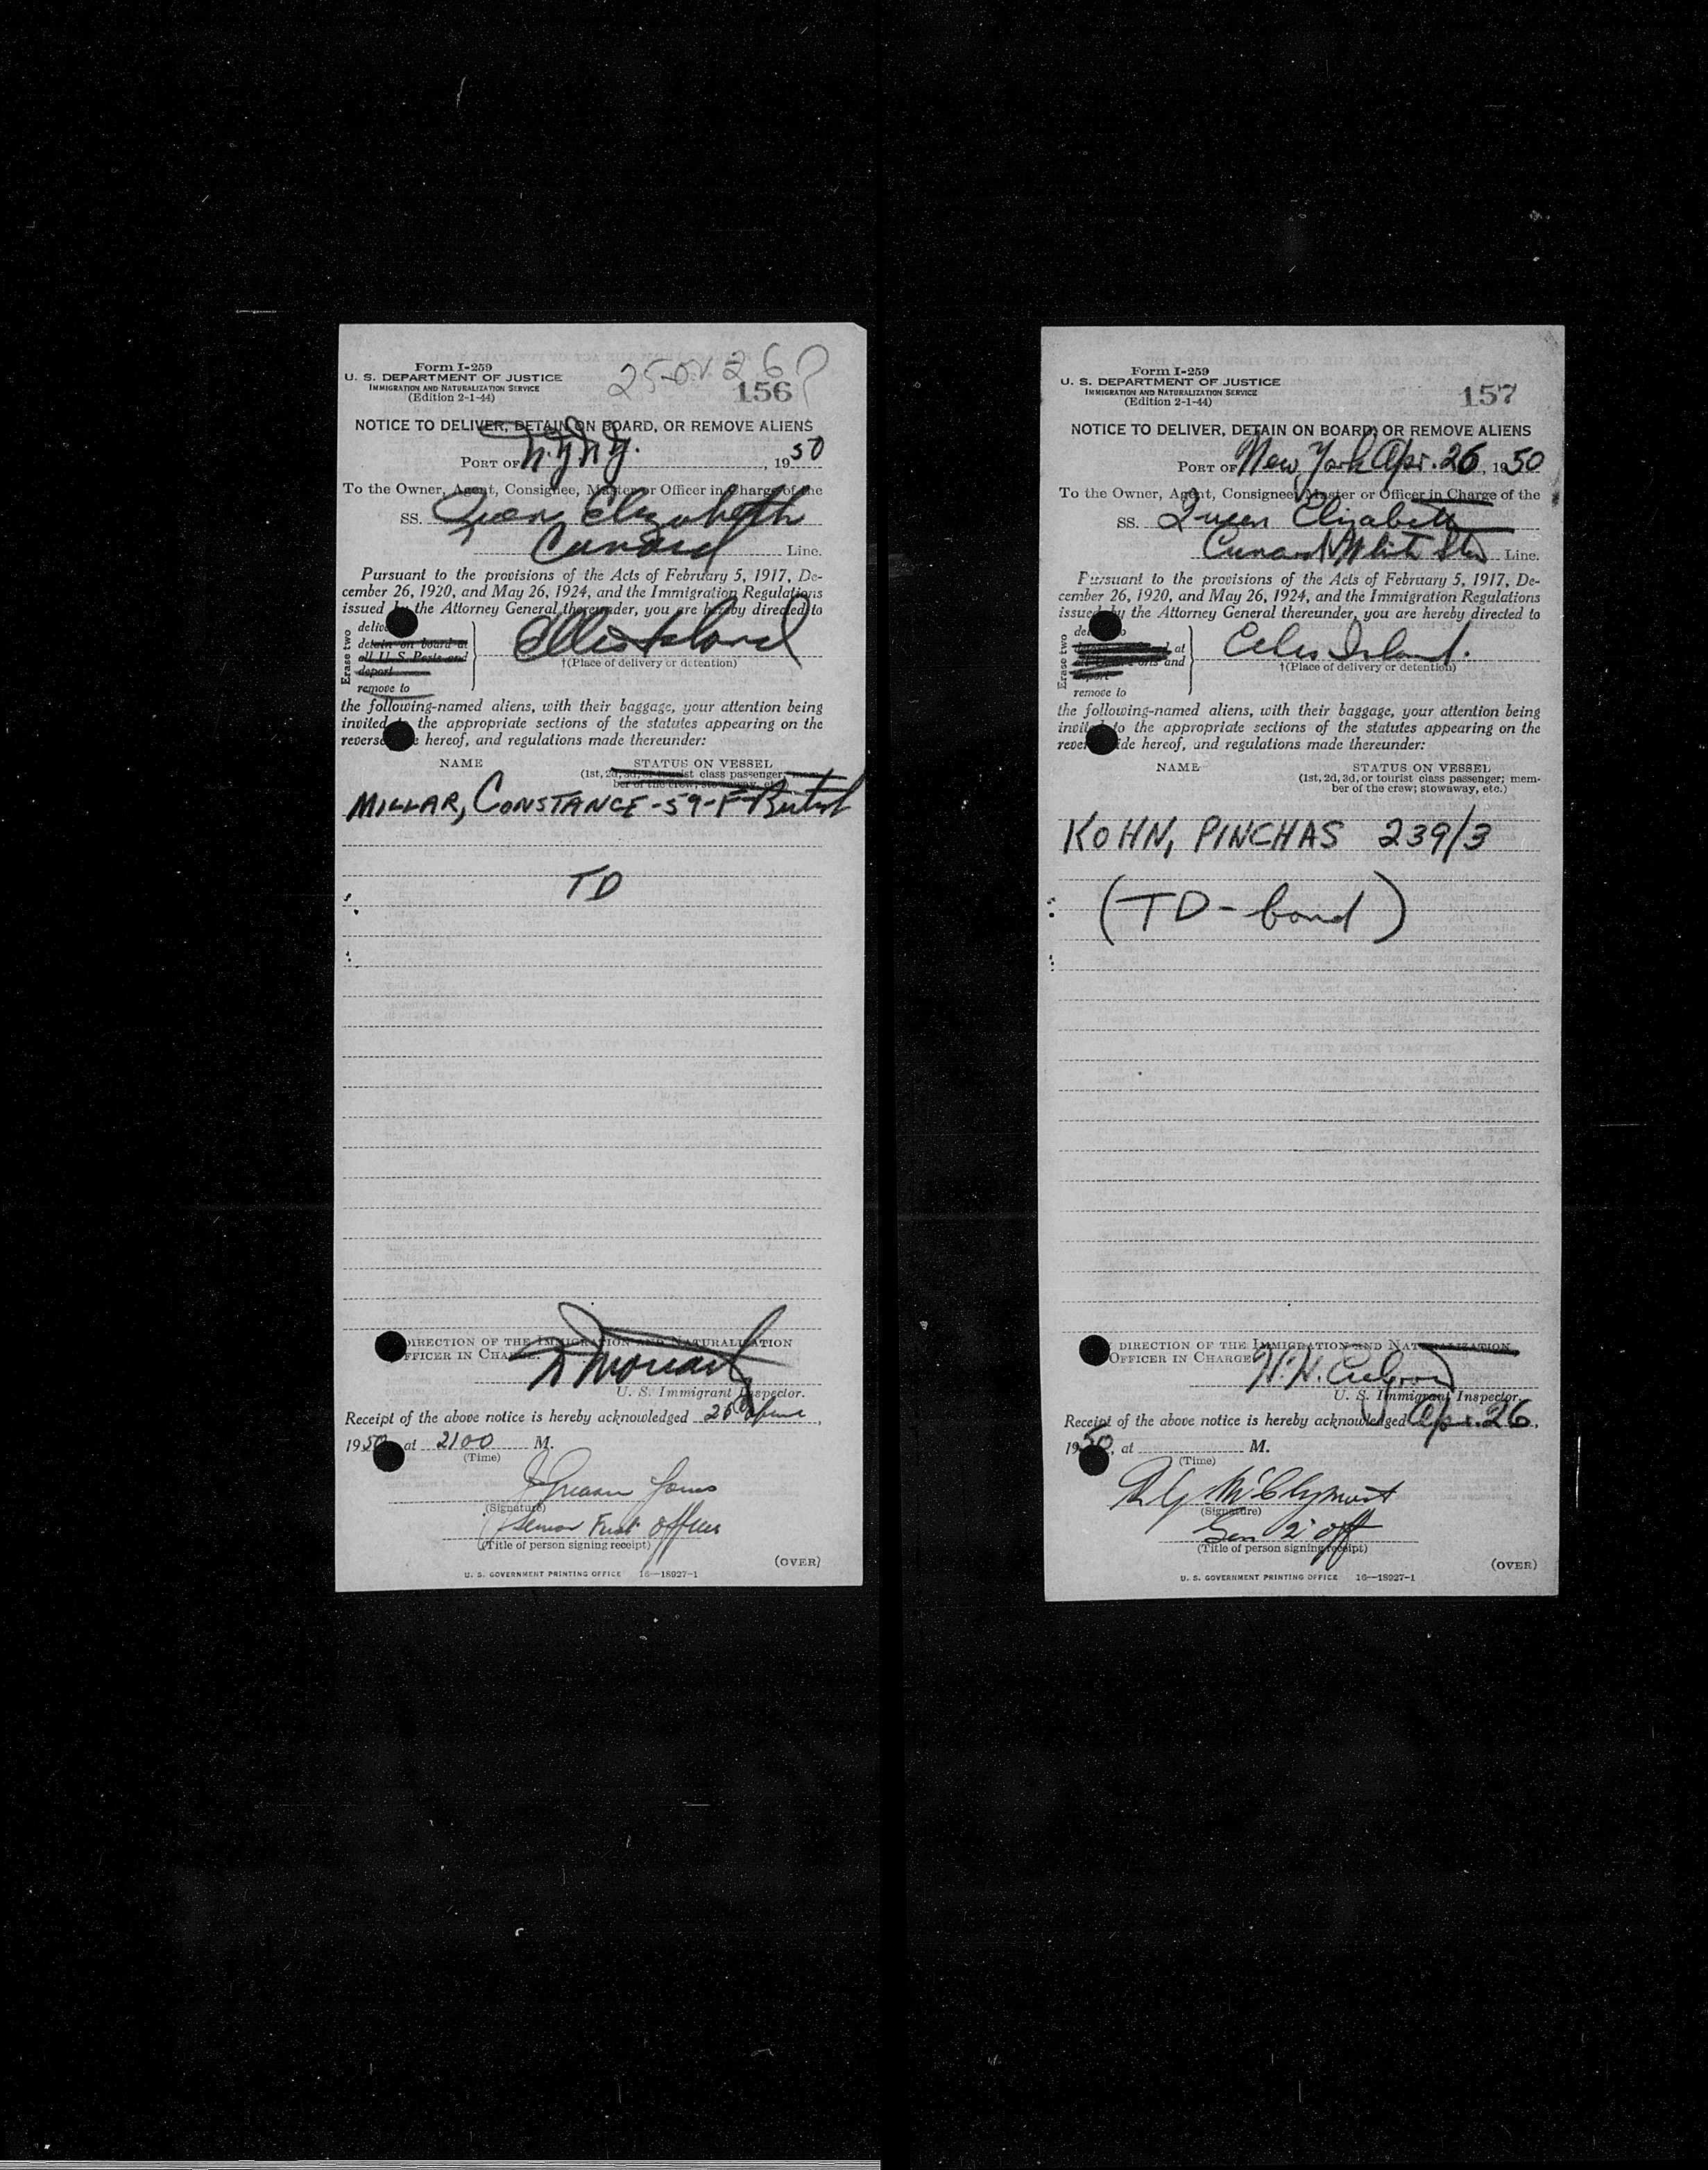 Form I-259
U. S. DEPARTMENT OF JUSTICE
IMMIGRATION AND NATURALIZATION SERVICE
(Edition 2-1-44)
156
NOTICE TO DELIVER, DETAIN ON BOARD, OR REMOVE ALIENS
PORT OF N.Y.N.Y. , 1950
To the Owner, Agent, Consignee, Master or Officer in Charge of the
SS. Queen Elizabeth
Cunard Line.
Pursuant to the provisions of the Acts of February 5, 1917, De-
cember 26, 1920, and May 26, 1924, and the Immigration Regulations
issued by the Attorney General thereunder, you are hereby directed to
Erase two
detain on board at
all U. S. Ports and
deport
remove to
Ellis Island
†(Place of delivery or detention)
the following-named aliens, with their baggage, your attention being
invited to the appropriate sections of the statutes appearing on the
reverse hereof, and regulations made thereunder:
NAME STATUS ON VESSEL
(1st, 2d, 3d, or tourist class passenger; mem-
ber of the crew; stowaway, etc.)
MILLAR, CONSTANCE - 59 - F - British
TD
DIRECTION OF THE IMMIGRATION AND NATURALIZATION
OFFICER IN CHARGE.
U. S. Immigrant Inspector.
Receipt of the above notice is hereby acknowledged 26
1950 at 2100 M.
(Time)
Jones
(Signature)
Senior First Officer
(Title of person signing receipt)
(OVER)
U. S. GOVERNMENT PRINTING OFFICE 16—18927-1
Form I-259
U. S. DEPARTMENT OF JUSTICE
IMMIGRATION AND NATURALIZATION SERVICE
(Edition 2-1-44)
157
NOTICE TO DELIVER, DETAIN ON BOARD, OR REMOVE ALIENS
PORT OF New York Apr. 26, 1950
To the Owner, Agent, Consignee, Master or Officer in Charge of the
SS. Queen Elizabeth
Cunard White Star Line.
Pursuant to the provisions of the Acts of February 5, 1917, De-
cember 26, 1920, and May 26, 1924, and the Immigration Regulations
issued by the Attorney General thereunder, you are hereby directed to
Erase two
at
Ports and
deport
remove to
Ellis Island.
†(Place of delivery or detention)
the following-named aliens, with their baggage, your attention being
invited to the appropriate sections of the statutes appearing on the
reverse side hereof, and regulations made thereunder:
NAME STATUS ON VESSEL
(1st, 2d, 3d, or tourist class passenger; mem-
ber of the crew; stowaway, etc.)
KOHN, PINCHAS 239/3
(TD - bond)
DIRECTION OF THE IMMIGRATION AND NATURALIZATION
OFFICER IN CHARGE
U. S. Immigrant Inspector.
Receipt of the above notice is hereby acknowledged Apr. 26,
1950, at M.
(Time)
(Signature)
Sen 2 off
(Title of person signing receipt)
(OVER)
U. S. GOVERNMENT PRINTING OFFICE 16—18927-1